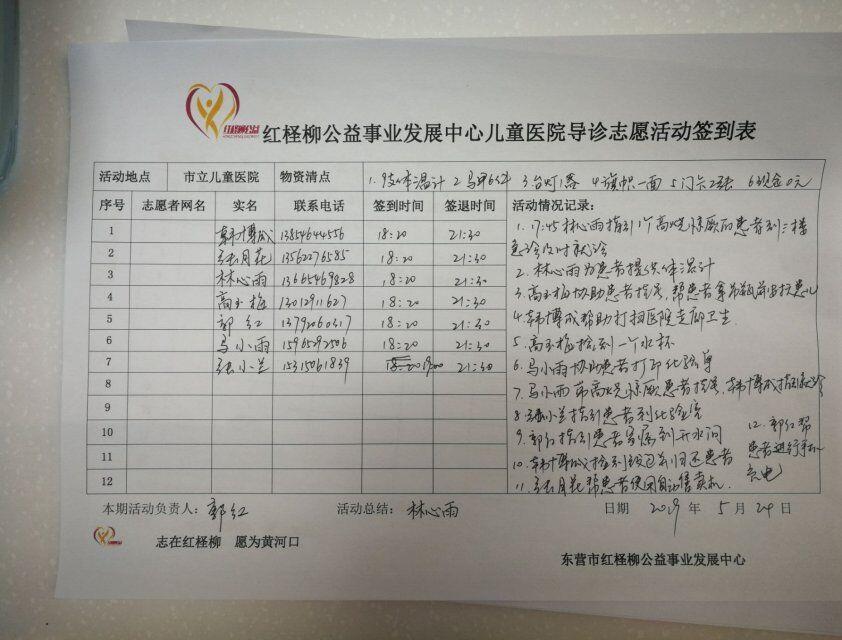 红柽柳公益
红柽柳公益事业发展中心儿童医院导诊志愿活动签到表
活动地点 市立儿童医院 物资清点 1.9支体温计 2马甲6件 3.台灯1盏 4旗帜一面 5门卡2张 6现金0元
序号 志愿者网名 实名 联系电话 签到时间 签退时间 活动情况记录:
1 韩博成 13854644556 18:20 21:30
2 张月花 13562276585 18:20 21:30
3 林心雨 13665469828 18:20 21:30
4 高玉梅 13012911627 18:20 21:30
5 郭红 13792060317 18:20 21:30
6 马小雨 15965292506 18:20 21:30
7 张小兰 15315061839 19:00 21:30
8
9
10
11
12
1. 17:45林心雨指引1个高烧惊厥的患者到三楼
急诊及时就诊
2. 林心雨为患者提供体温计
3. 高玉梅协助患者指导,帮患者拿吊瓶
4. 韩博成帮助打扫医院走廊卫生.
5. 高玉梅捡到一个水杯
6. 马小雨协助患者打印化验单
7. 马小雨 高烧惊厥患者指导,韩博成指引就诊
8. 张小兰指引患者到化验室
9. 郭红指引患者家属到开水间
10. 韩博成捡到钱包并归还患者
11. 张月花帮患者使用自动售卖机.
12. 郭红帮
患者进行手机
充电
本期活动负责人: 郭红 活动总结: 林心雨 日期 2019 年 5 月 24 日
志在红柽柳 愿为黄河口
东营市红柽柳公益事业发展中心